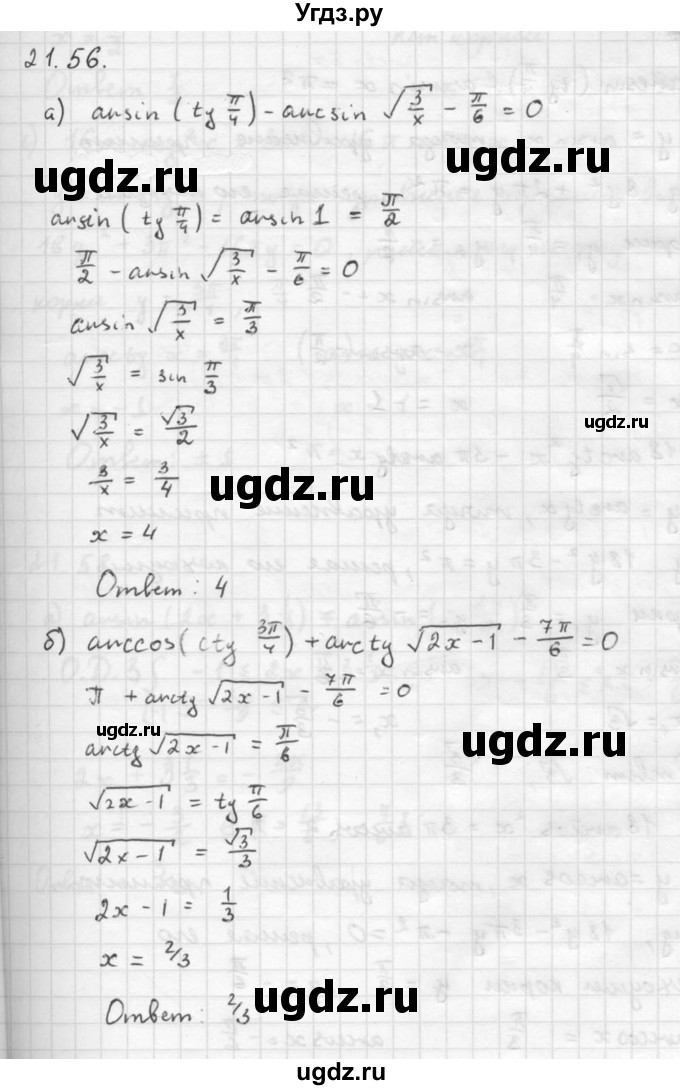 Угдз.ру
21.56.
а) arcsin (tg π/4) - arcsin √(3/x) - π/6 = 0
ugdz.ru ugdz.ru
arcsin (tg π/4) = arcsin 1 = π/2
π/2 - arcsin √(3/x) - π/6 = 0
arcsin √(3/x) = π/3
√(3/x) = sin π/3
√(3/x) = √3/2
ugdz.ru
3/x = 3/4
ugdz.ru
x = 4
Ответ: 4
б) arccos (ctg 3π/4) + arctg √(2x-1) - 7π/6 = 0
π + arctg √(2x-1) - 7π/6 = 0
ugdz.ru ugdz.ru
arctg √(2x-1) = π/6
√(2x-1) = tg π/6
√(2x-1) = √3/3
2x-1 = 1/3
x = 2/3
Ответ: 2/3
ugdz.ru ugdz.ru
ugdz.ru